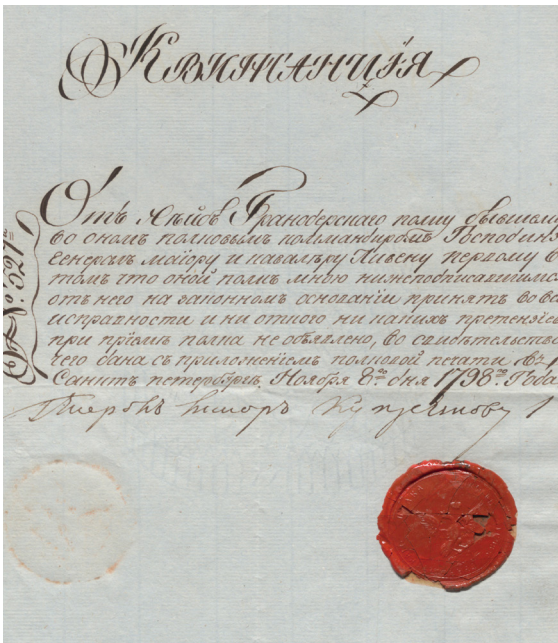 Квитанція
Отъ Лейбъ Гранодерскаго полку бывшом
во ономъ полковымъ коммандиромъ Господин
Генералъ маіору и кавалѣру Ливену первому в
томъ что оной полкъ мною нижеподписавшимс
отъ него на законномъ основаніи принятъ во в
исправности и ни отного ни какихъ претензіе
при пріемѣ полка не объявлено, во свидѣтельств
чего дана съ приложеніемъ полковой печати
Санктъ петербургъ, Ноября 8го дня 1798го Года
маіоръ
№. 527